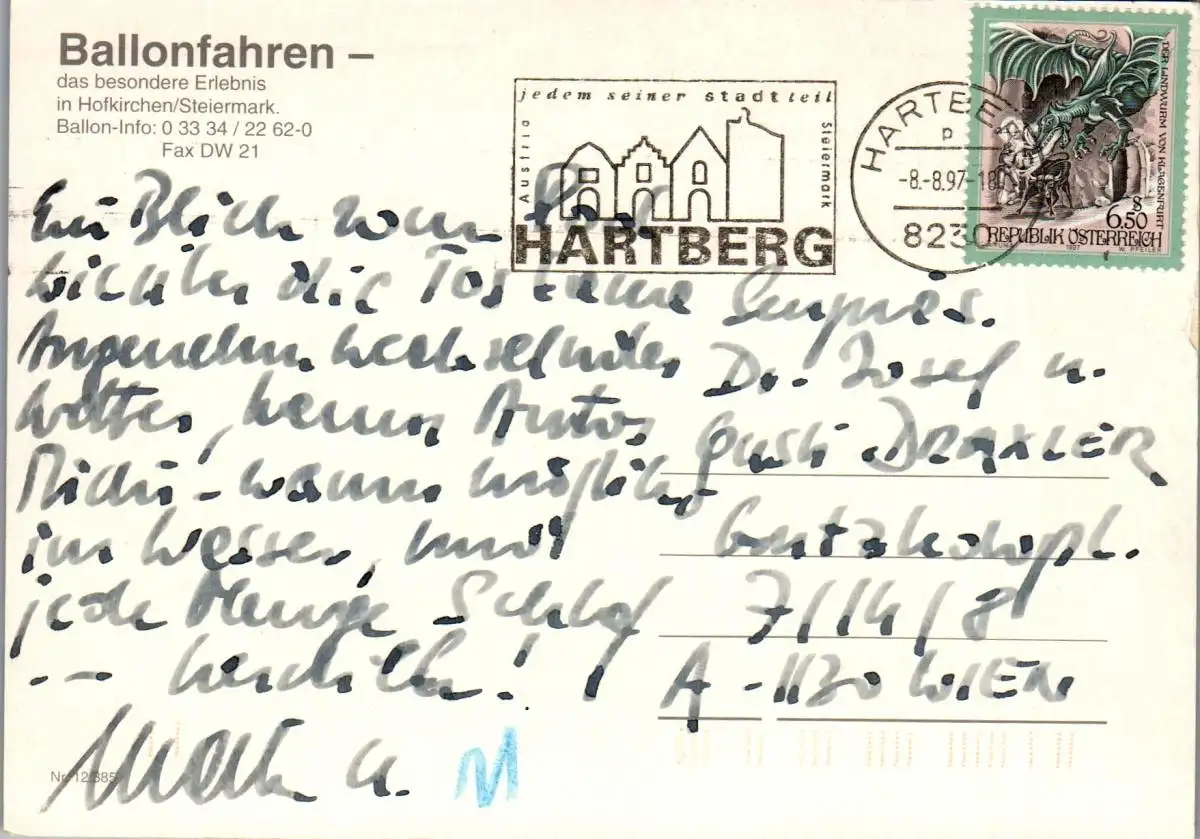 Ballonfahren –
das besondere Erlebnis
in Hofkirchen/Steiermark.
Ballon-Info: 0 33 34 / 22 62-0
Fax DW 21
jedem seiner stadtteil
Austria
Steiermark
HARTBERG
HARTBERG
p
-8.-8.97-18
8230
DER LINDWURM VON KLAGENFURT
S
6.50
REPUBLIK ÖSTERREICH
1997
W. PFEILER
Ein Blick vom
die Toskana
Angenehm wechselndes
Wetter, keine Autos
wenn möglich
im Wasser, und
jede Menge Schlaf
-- herrlich!
u. M
Dr. Josef u.
Gusti DRAXLER
7/14/8
A-1130 WIEN
Nr. 12/385